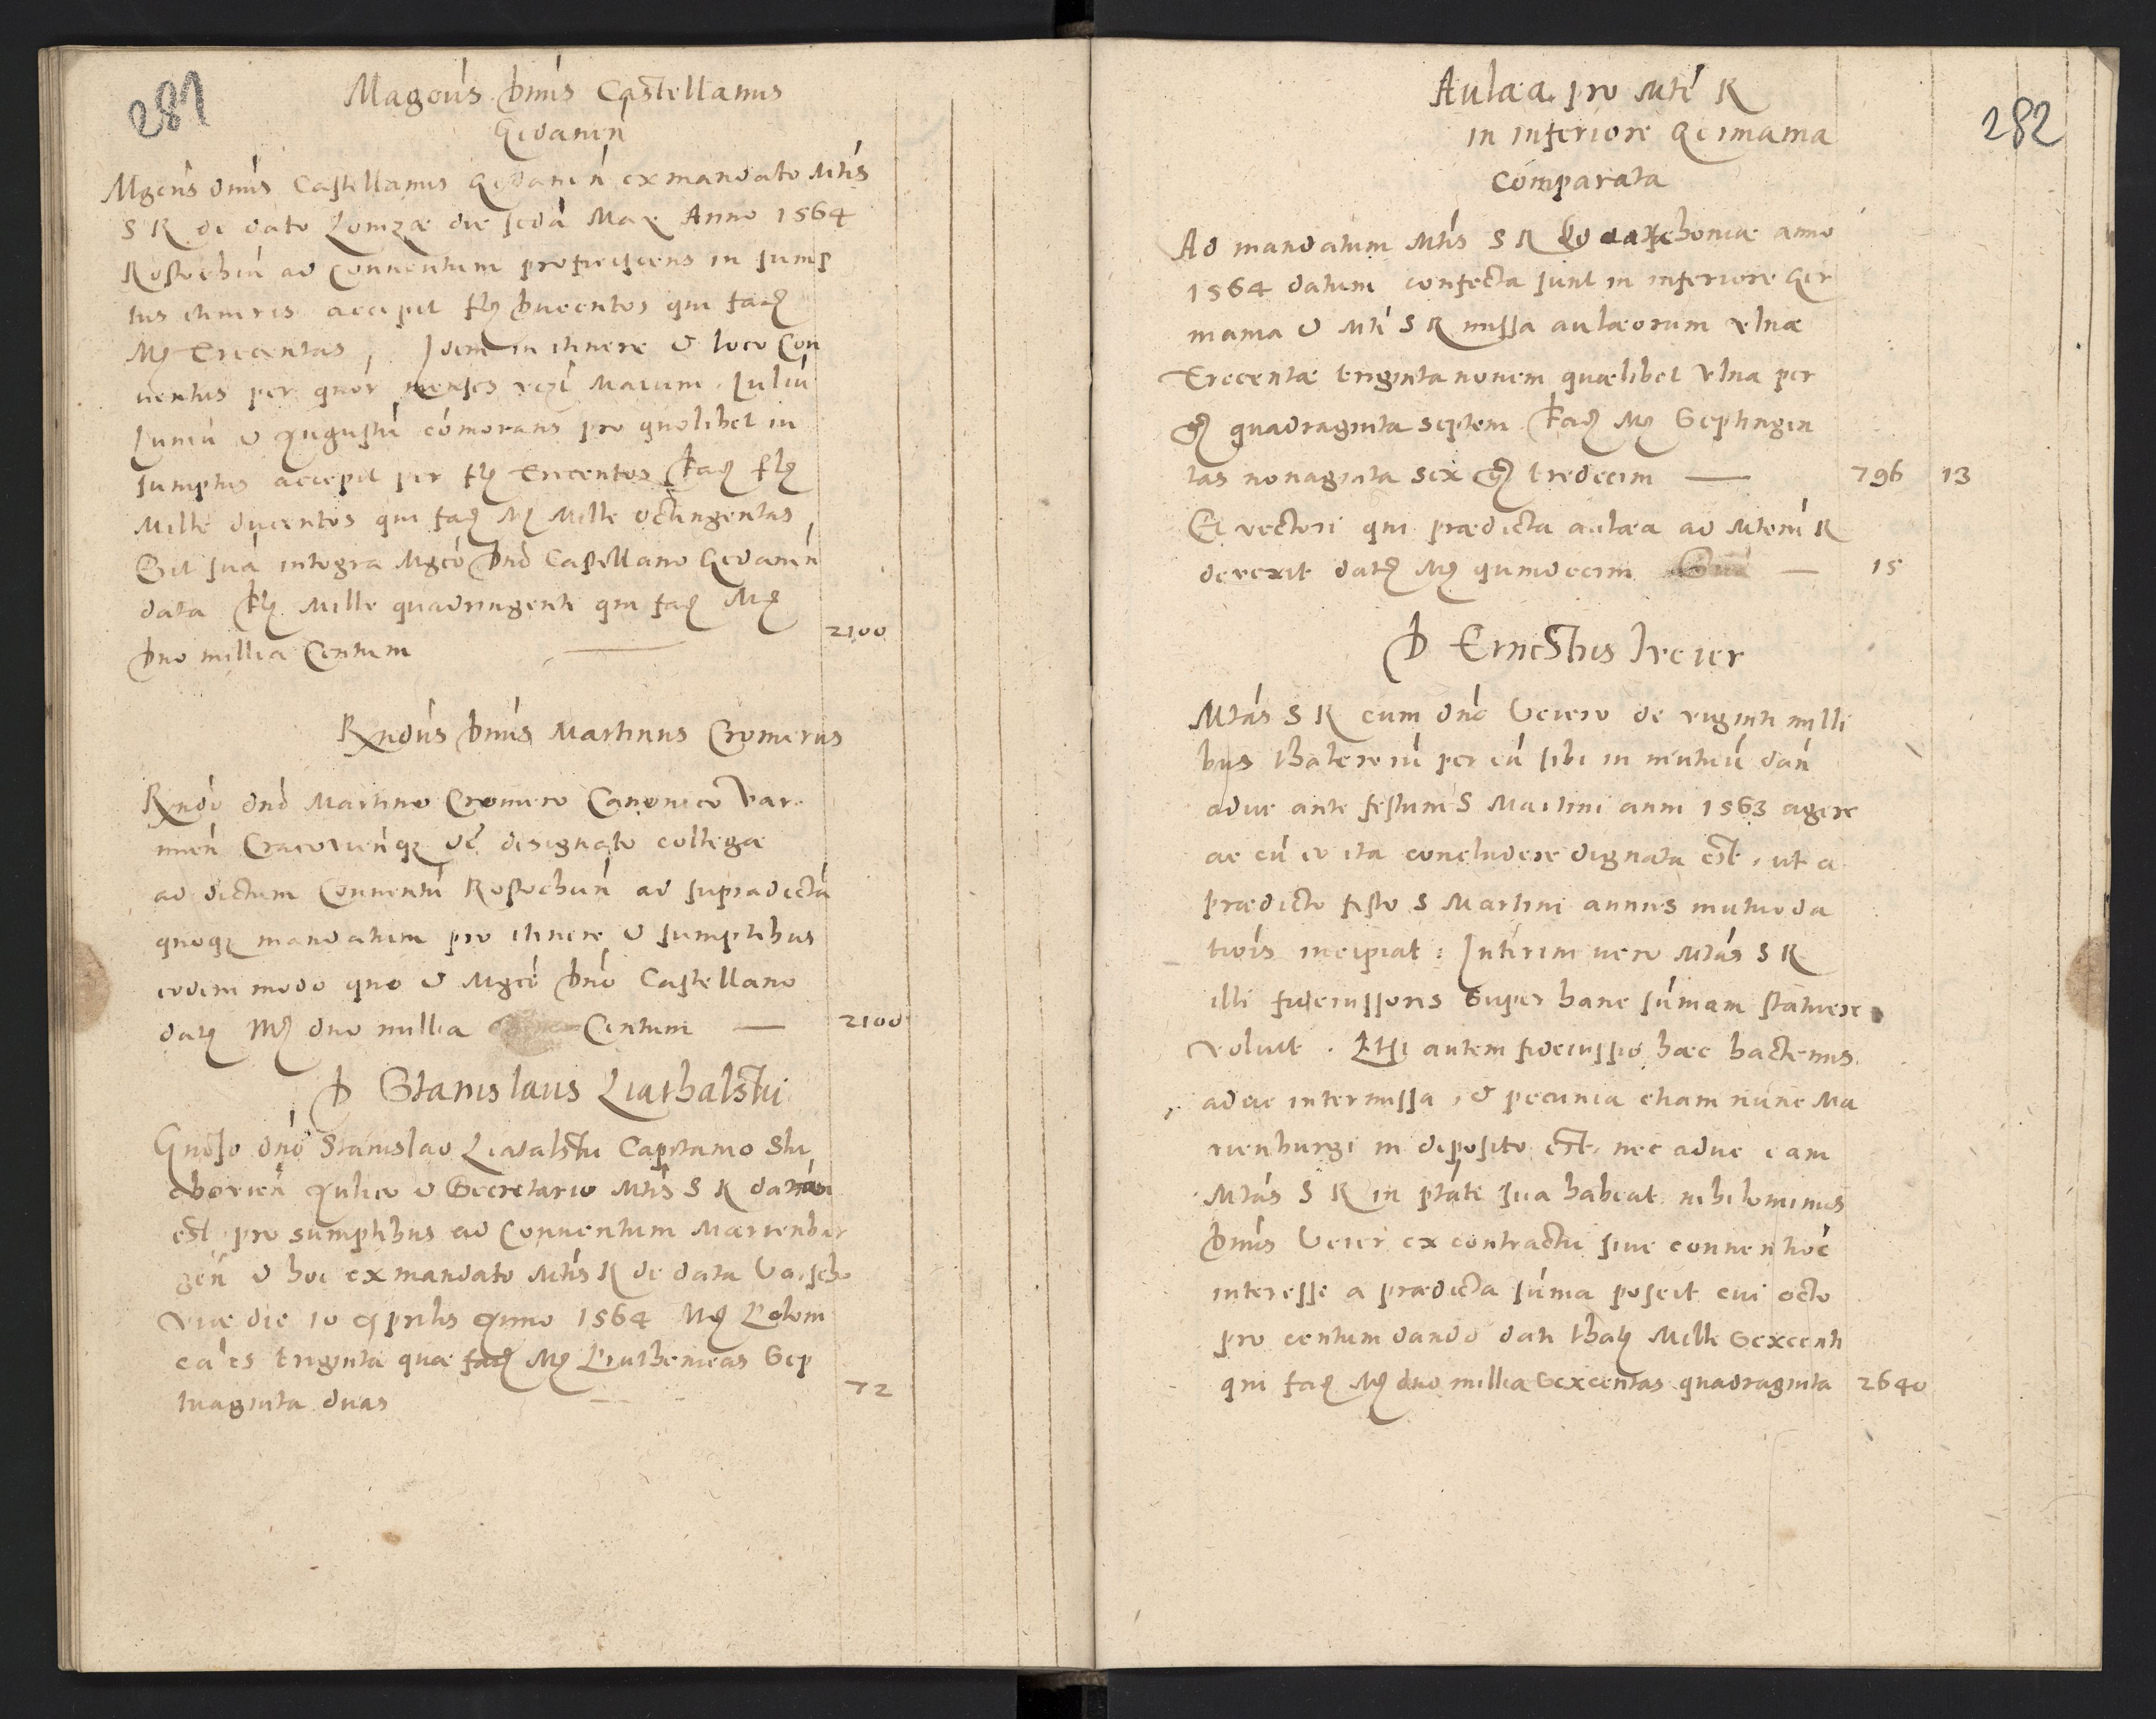 281
Magcus Dnus Castellanus
Gedanen
Mgcus dnus Castellanus Gedanen ex mandato Mtis
S R de dato Lomzæ die scda Maÿ Anno 1564
Rostochiu ad Conuentum proficiscens in sump
tus itineris accepit fl Ducentos qui fac
Mr Trecentas, Idem in itinere & loco Con
uentus per quor menses Maium Iuliu
Iuniu & Augustu comorans pro quolibet in
sumptus accepit per fl Trecentos fac fl
Mille ducentos qui fac Mr Mille octingentas
Sit sua integra Mgco Dno Castellano Gedanen
data Fl Mille quadringenti qui fac Mr
Duo millia Centum — 2100
Rndus Dnus Martinus Cromerus
Rndo dno Martino Cromero Canonico Var
mien Cracouienq designato collegæ
ad dictum Conuentu Rostochun ad supradictu
quoq mandatum pro itinere & sumptibus
eodem modo quo & Mgco Dno Castellano
dat Mr duo millia Centum — 2100
D Stanislaus
Gnoso dno Stanislao Capitaneo Slu
chouien Aulico & Secretario Mtis S R datum
est pro sumptibus ad Conuentum Marienbur
gen & hoc ex mandato Mtis R de data Varscho
viæ die 10 Aprilis Anno 1564 Mr Polom
cales triginta quæ fac Mr Pruthenicas Sep
tuaginta duas — 72
282
Aulæa pro Mte R
in inferiore Germania
Comparata
Ad mandatum Mtis S R anno
1564 datum confecta sunt in inferiore Ger
mania & Mti S R missa aulæorum vlnæ
Trecentæ triginta nonem quælibet vlna per
gr quadraginta septem Fac Mr Septingen
tas nonaginta sex gr tredecim — 796 13
Et vectori qui prædicta aulæa ad Mtem R
devexit dat Mr quindecim — 15
D Ernestus Veier
Mtas S R cum dno Veiero de viginti milli
bus thaleroru per eu sibi in mutuu dan
adue ante festum S Martini anni 1563 agere
ac cu eo ita concludere dignata est, ut a
prædicto festo S Martini annus mutuo da
tiois incipiat: Interim uero Mtas S R
illi fideiussores Super hanc sumam statuere
voluit. Etsi autem fideiussio hæc hactenus
adue intermissa, & pecunia etiam nunc Ma
rienburgi in deposito est, nec adue eam
Mtas S R in ptate sua habeat nihilominus
Dnus Veier ex contractu siue conuentioe
interesse a prædicta suma poscit cui octo
pro centum dando dati thal Mille Sexcenti
qui fac Mr duo millia Sexcentas quadraginta 2640